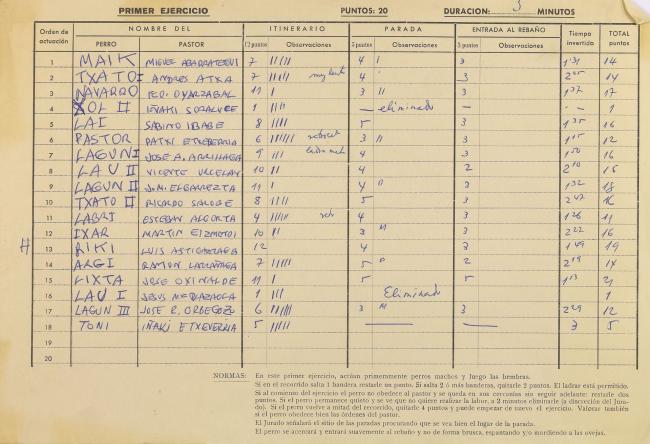 PRIMER EJERCICIO PUNTOS: 20 DURACION: 3 MINUTOS
Orden de actuación NOMBRE DEL ITINERARIO PARADA ENTRADA AL REBAÑO Tiempo invertido TOTAL puntos
PERRO PASTOR 12 puntos Observaciones 5 puntos Observaciones 3 puntos Observaciones
1 MAIK MIGUEL 7 4 3 1'31 14
2 TXATO I ANDRES ATXA 7 4 3 14
3 NAVARRO OYARZABAL 11 3 3 1'37 17
4 SOL II IÑAKI SORALUCE 1 — eliminado — — 1
5 LAI SABINO 8 5 3 1'35 16
6 PASTOR PATXI ETXEBERRIA 6 3 3 12
7 LAGUN I JOSE A. ARRIAGA 9 4 3 1'50 16
8 LAU II VICENTE URCELAY 10 4 2 16
9 LAGUN II J.M. 11 4 3 1'32 18
10 TXATO II RICARDO 8 5 3 16
11 LABRI ESTEBAN ALCORTA 4 4 3 11
12 IXAR MARTIN EIZMENDI 10 3 3 2'22 16
13 RIKI LUIS ASTIGARRAGA 12 4 3 1'49 19
14 ARGI RAMON LARRAÑAGA 7 5 2 14
15 LIXTA JOSE 11 5 5 21
16 LAU I JESUS 1 Eliminado 1
17 LAGUN III JOSE R. ORBEGOZO 6 3 3 2'29 12
18 TONI IÑAKI ETXEVERRIA 5 — — 3 5
19
20
NORMAS: En este primer ejercicio, actúan primeramente perros machos y luego las hembras.
Si en el recorrido salta 1 bandera restarle un punto. Si salta 2 ó más banderas, quitarle 2 puntos. El ladrar está permitido.
Si al comienzo del ejercicio el perro no obedece al pastor y se queda en sus cercanías sin seguir adelante: restarle dos
puntos. Si el perro permanece quieto y se ve que no quiere realizar la labor, a 2 minutos eliminarle (a discreción del Jura-
do). Si el perro vuelve a mitad del recorrido, quitarle 4 puntos y puede empezar de nuevo el ejercicio. Valorar también
si el perro obedece bien las órdenes del pastor.
El Jurado señalará el sitio de las paradas procurando que se vea bien el lugar de la parada.
El perro se acercará y entrará suavemente al rebaño y no de forma brusca, espantando y/o mordiendo a las ovejas.